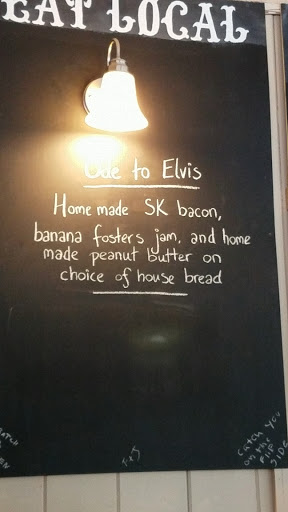 EAT LOCAL
Ode to Elvis
Home made SK bacon,
banana fosters jam, and home
made peanut butter on
choice of house bread
Catch you
on the
flip
side